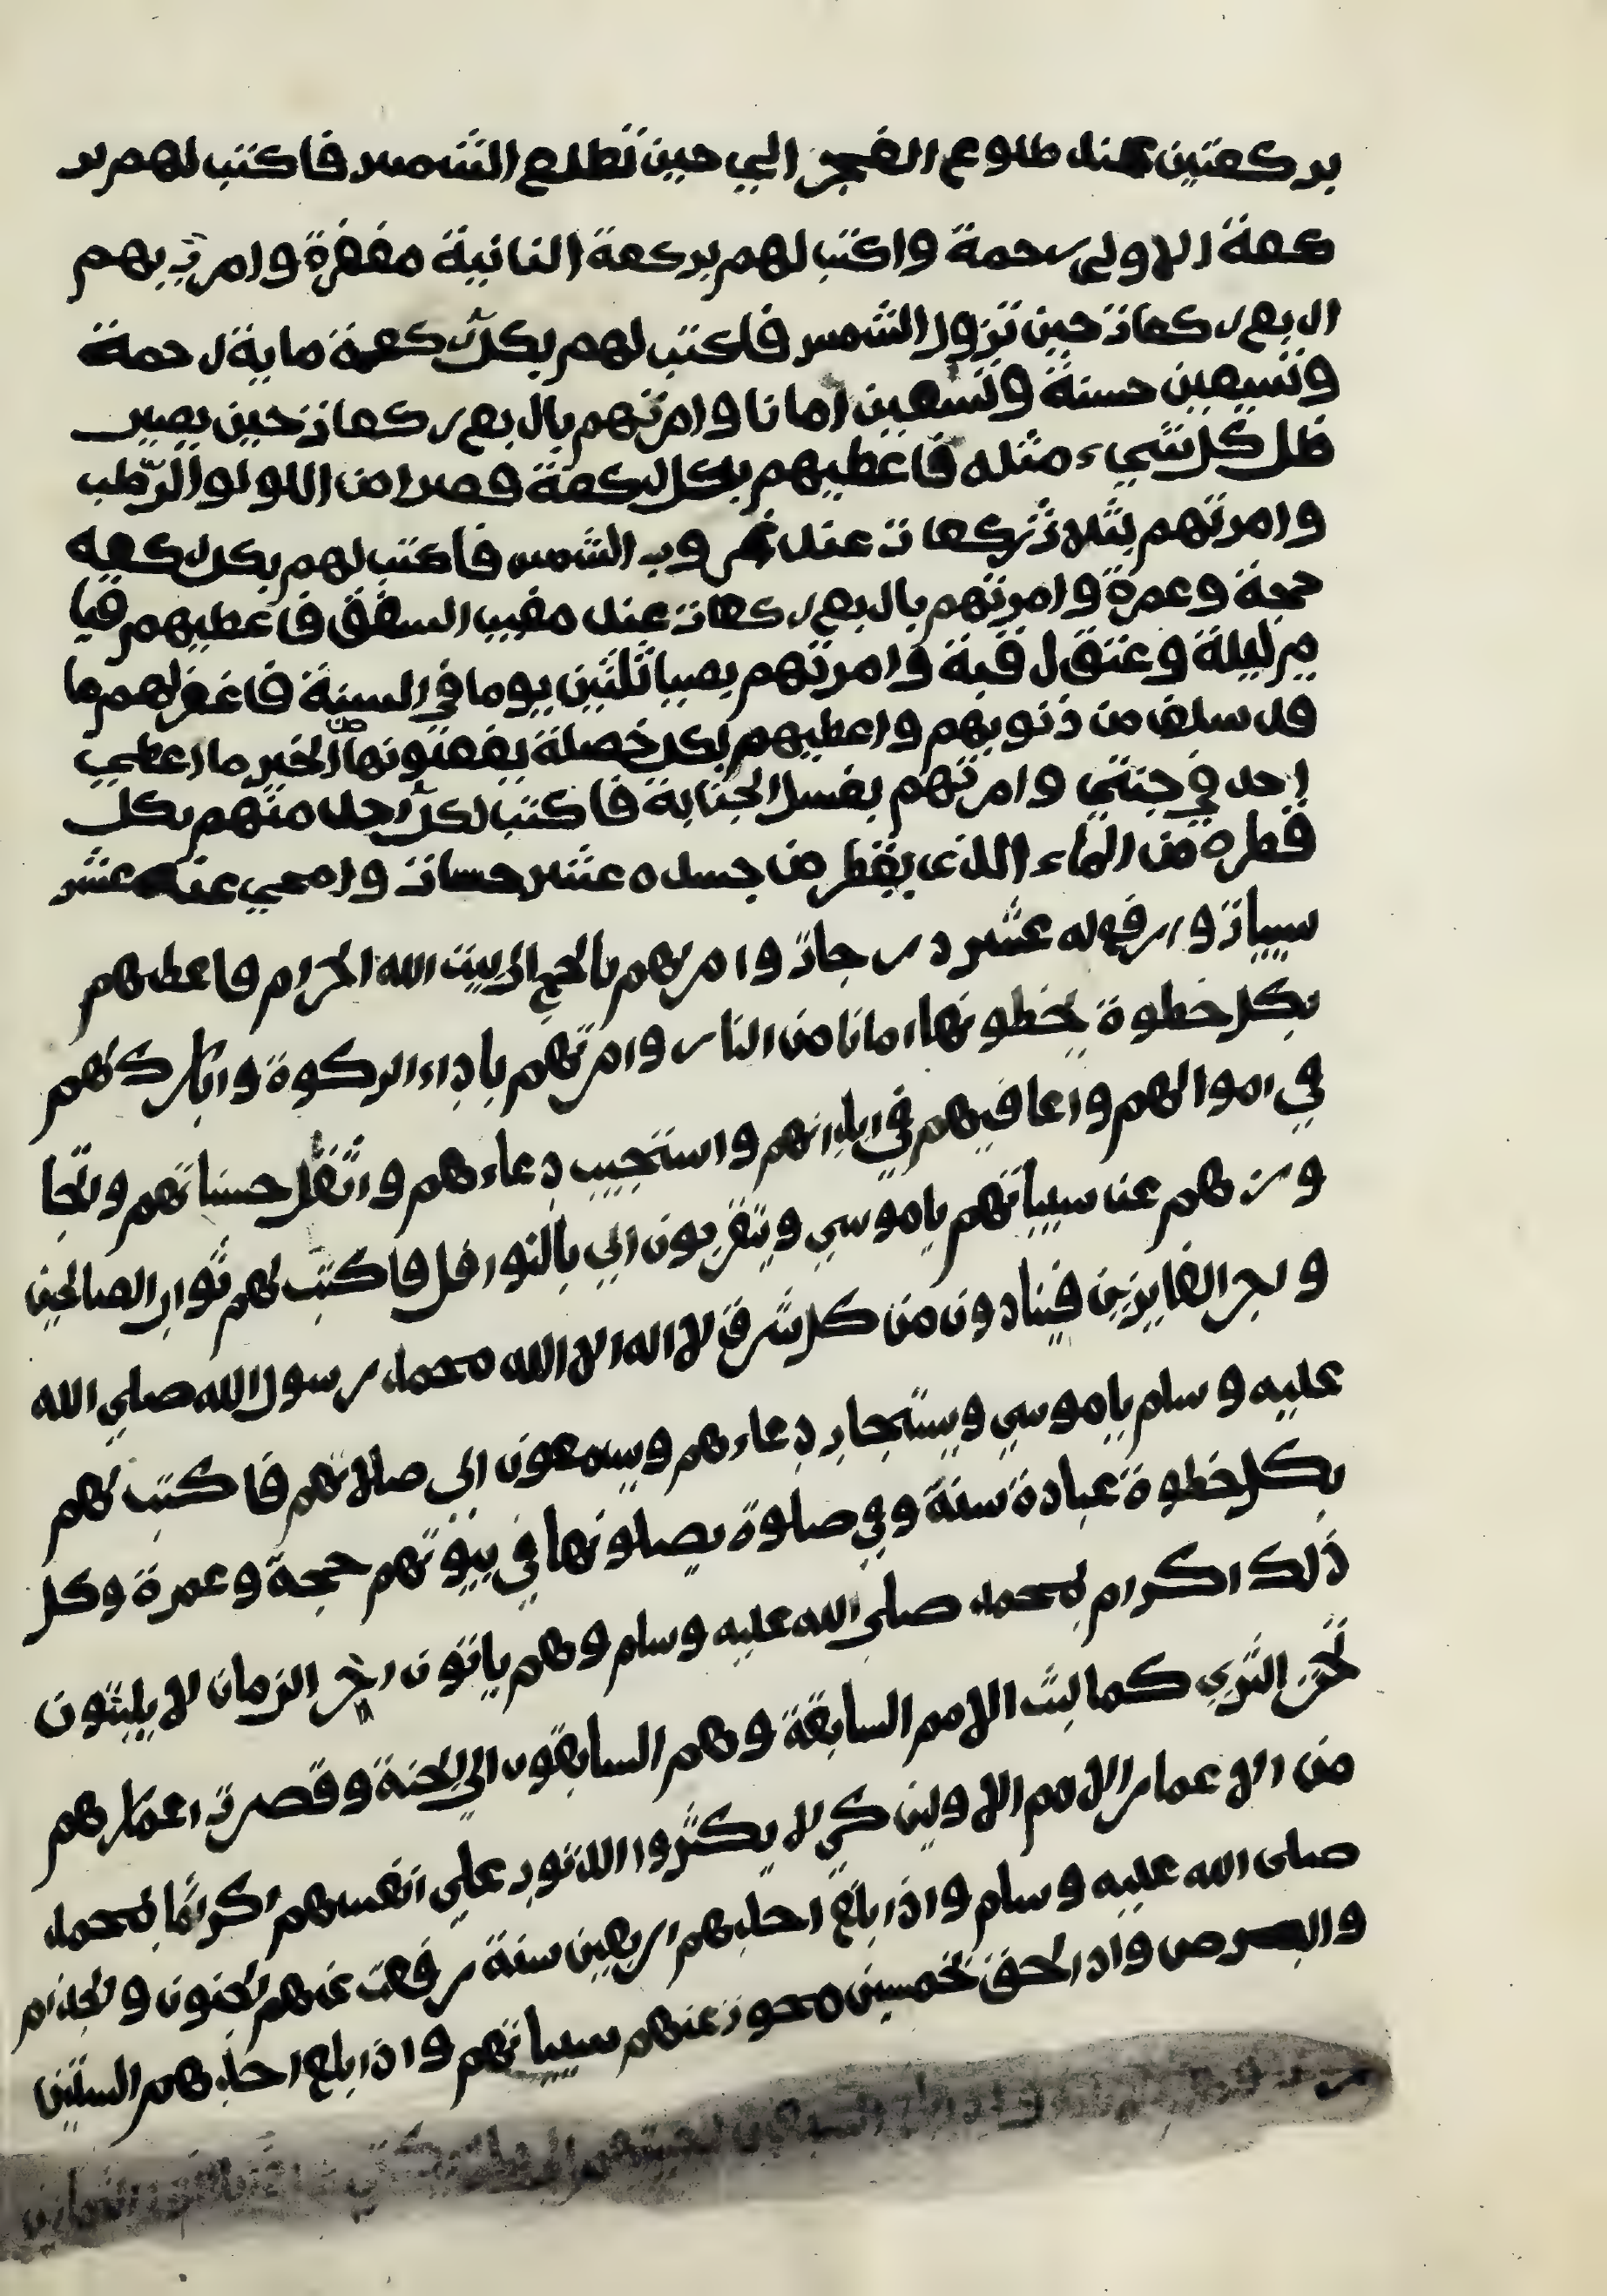 بركعتين عند طلوع الفجر الي حين تطلع الشمس فاكتب لهم بر
كعة الاولى رحمة واكتب لهم بركعة الثانية مغفرة وامرت بهم
اربع ركعات حين تزول الشمس فاكتب لهم بكل ركعة ماية رحمة
وتسعين حسنة وتسعين امانا وامرتهم باربع ركعات حين يصير
ظل كل شيء مثله فاعطيهم بكل ركعة قصرا من اللولو الرّطب
وامرتهم بثلاث ركعات عند غروب الشمس فاكتب لهم بكل ركعة
حجة وعمرة وامرتهم باربع ركعات عند مغيب الشفق فاعطيهم قيا
م ليلة وعتق رقبة وامرتهم بصيا ثلثين يوما في السنة فاغفر لهم ما
قد سلف من ذنوبهم واعطيهم بكل خصلة يفعلونها من الخير ما اعطي
احد في جنتي وامرتهم بغسل الجنابة فاكتب لكل احد منهم بكل
قطرة من الماء الذى يقطر من جسده عشر حسنات وامحي عنه عشر
سييات وارفع له عشر درجات وامرتهم بالحج الى بيت الله الحرام فاعطهم
بكل خطوة يخطونها امانا من النار وامرتهم باداء الزكوة وابارك لهم
في اموالهم واعافيهم في ابدانهم واستجيب دعاءهم واثقل حسناتهم واتجا
وزهم عن سيياتهم ياموسي ويتقربون الي بالنوافل فاكتب لهم ثواب الصالحين
واجر الفايزين فينادون من كل شرف لااله الا الله محمد رسول الله صلي الله
عليه وسلم ياموسي ويستجاب دعاءهم ويسمعون الى صلاتهم فاكتب لهم
بكل خطوة عبادة سنة وفي صلوة يصلونها في بيوتهم حجة وعمرة وكل
ذلك اكرام لمحمد صلي الله عليه وسلم وهم ياتون اخر الزمان لا يلبثون
تحت الثري كما لبث الامم السابقة وهم السابقون الي الجنة وقصرت اعمارهم
من الاعمار الامم الاولين كي لا يكثروا الذنوب علي انفسهم اكراما لمحمد
صلى الله عليه وسلم واذا بلغ احدهم اربعين سنة رفعت عنهم الجنون والجذام
والبصرص واذ الحق خمسين محوت عنهم سيياتهم واذا بلغ احدهم الستين